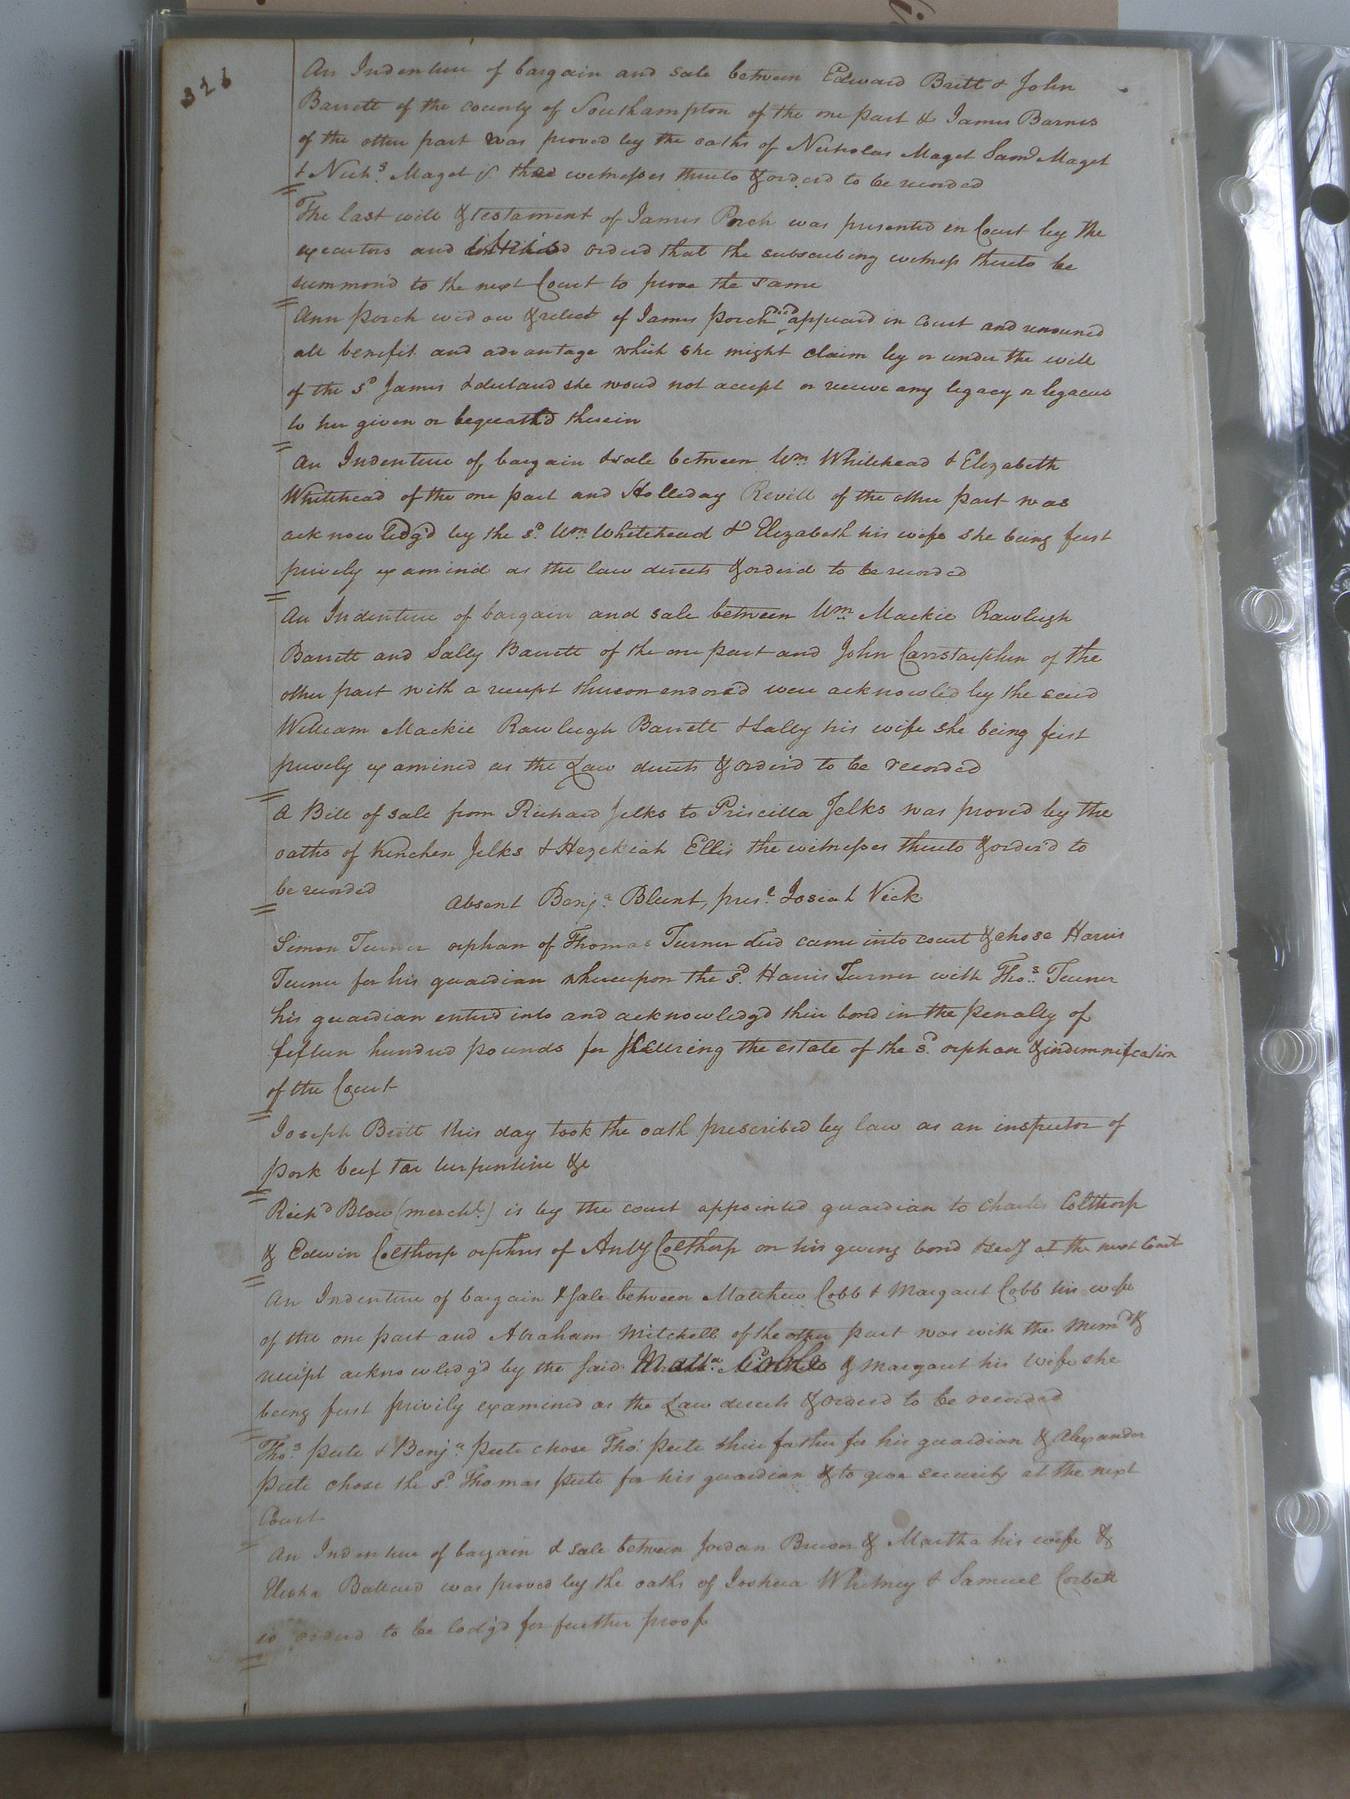 326
An Indenture of bargain and sale between Edward Britt & John
Barrett of the county of Southampton of the one part & James Barnes
of the other part was proved by the oaths of Nicholas Maget Saml Maget
& Nichs. Maget jr. three witnesses thereto & orderd to be recorded
The last will & testament of James Porch was presented in Court by the
executors and orderd that the subscribing witness thereto be
summon'd to the next Court to prove the same
Ann Porch widow & relict of James Porch decd. appeard in Court and renounced
all benefit and advantage which she might claim by or under the will
of the sd James & declard she woud not accept or receive any legacy or legacies
to her given or bequeath'd therein
An Indenture of bargain & sale between Wm Whitehead & Elizabeth
Whitehead of the one part and Holleday Revill of the other part was
acknowledg'd by the sd. Wm. Whitehead & Elizabeth his wife she being first
privily examined as the law directs & orderd to be recorded
An Indenture of bargain and sale between Wm. Mackie Rawleigh
Barrett and Sally Barrett of the one part and John Carrstarphen of the
other part with a receipt thereon endorsd were acknowled by the said
William Mackie Rawleigh Barrett & Sally his wife she being first
privily examined as the Law directs & orderd to be recorded
A Bill of sale from Richard Jelks to Priscilla Jelks was proved by the
oaths of Kinchen Jelks & Hezekiah Ellis the witnesses thereto & order'd to
be recorded
Absent Benja. Blunt, prest. Josiah Vick
Simon Turner orphan of Thomas Turner decd came into court & chose Harris
Turner for his guardian whereupon the sd. Harris Turner with Thos. Turner
his guardian enterd into and acknowledg'd their bond in the penalty of
fifteen hundred pounds for securing the estate of the sd. orphan & indemnification
of the Court
Joseph Britt this day took the oath prescribed by law as an inspector of
pork beef tar turpentine &c
Richd Blow (mercht.) is by the court appointed guardian to Charles Colthorp
& Edwin Colthorp orphans of Anty Colthorp on his giving bond & secy at the next Court
An Indenture of bargain & sale between Matthew Cobb & Margaret Cobb his wife
of the one part and Abraham Mitchell of the other part was with the Memd &
receipt acknowledg'd by the said Mattw. Cobb & Margaret his wife she
being first privily examined as the Law directs & orderd to be recorded
Thos. Peete & Benja. Peete chose Thos. Peete their father for his guardian & Alexander
Peete chose the sd. Thomas Peete for his guardian & to give security at the next
Court
An Indenture of bargain & sale between Jordan & Martha his wife &
Elisha Ballard was proved by the oaths of Joshua Whitney & Samuel Corbett
is orderd to be lodg'd for further proof